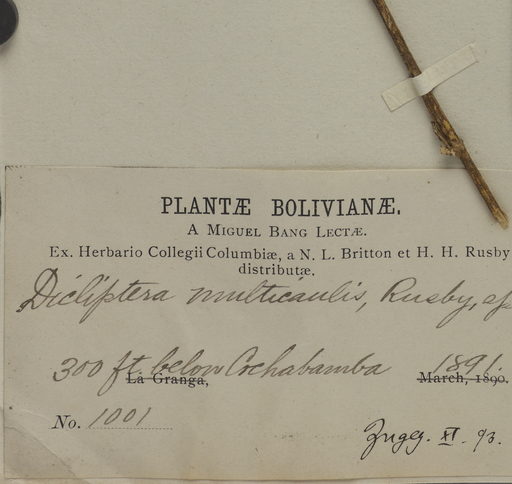 PLANTÆ BOLIVIANÆ.
A MIGUEL BANG LECTÆ.
Ex. Herbario Collegii Columbiæ, a N. L. Britton et H. H. Rusby
distributæ.
Dicliptera multicaulis, Rusby, sp
300 ft. below Cochabamba 1891.
La Granga, March, 1890.
No. 1001
Zugeg. XI. 93.